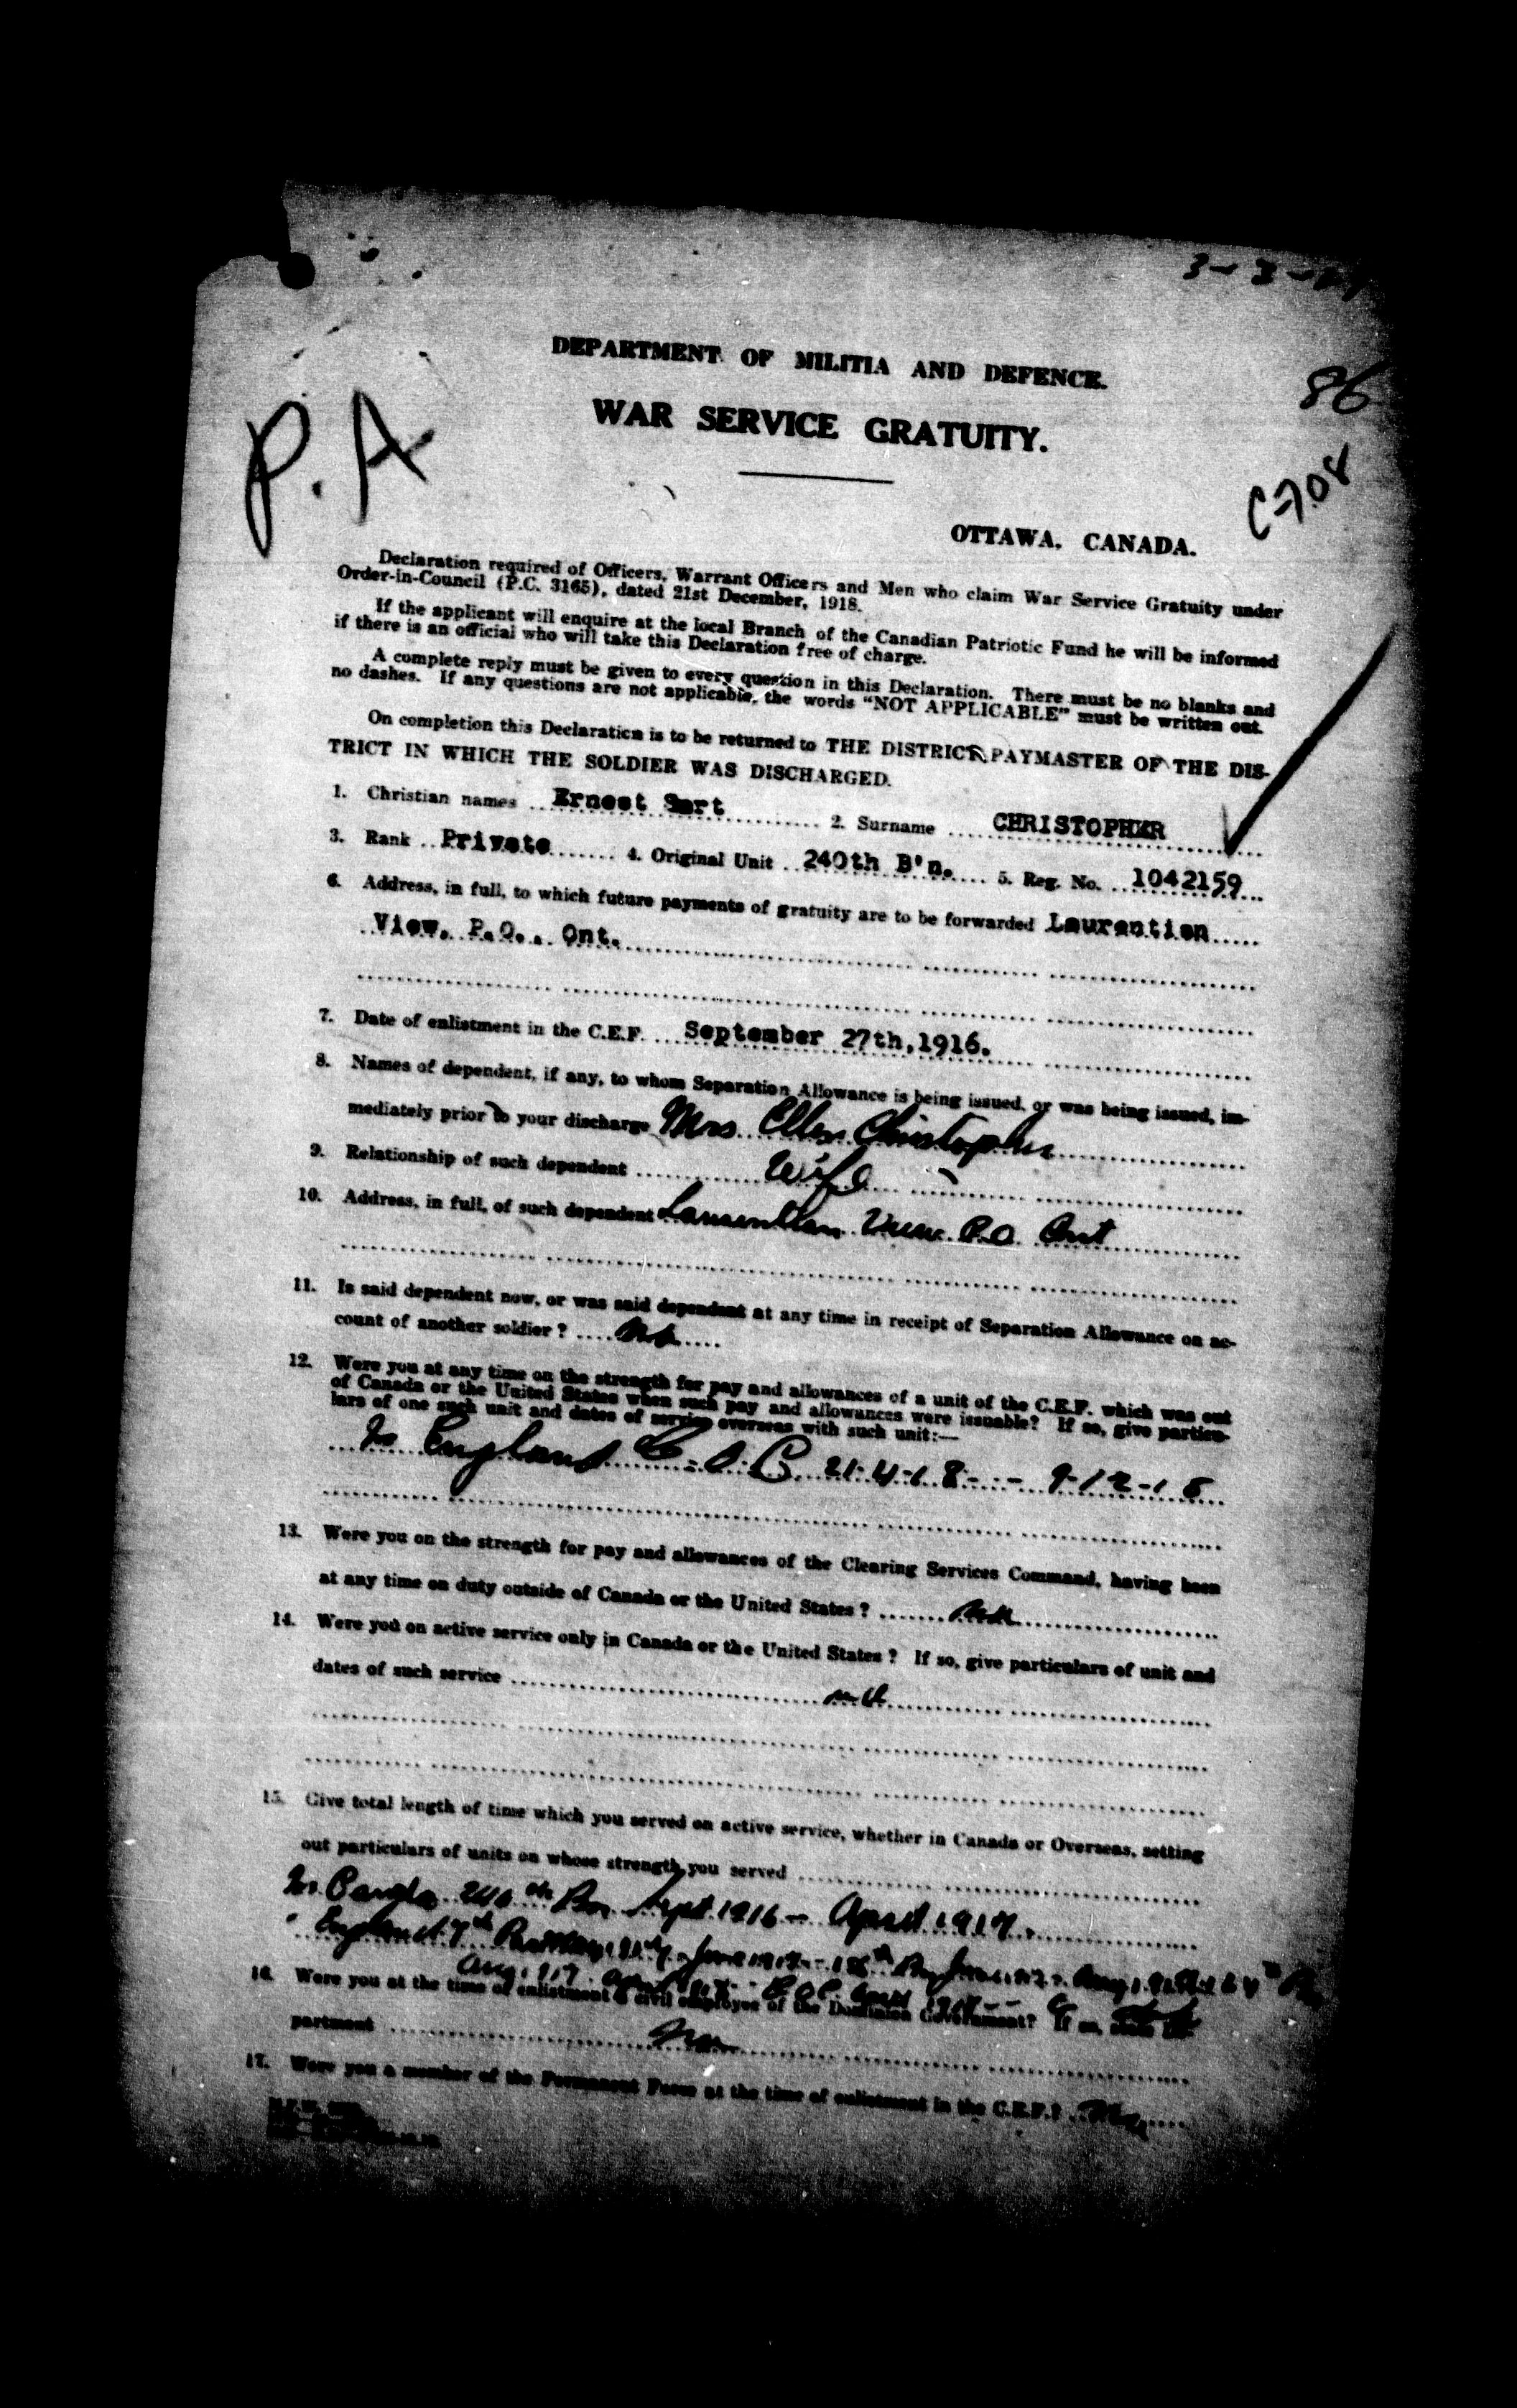 DEPARTMENT OF MILITIA AND DEFENCE.
86
WAR SERVICE GRATUITY.
P. A
OTTAWA, CANADA.
Declaration required of Officers, Warrant Officers and Men who claim War Service Gratuity under
Order-in-Council (P.C. 3165), dated 21st December, 1918.
If the applicant will enquire at the local Branch of the Canadian Patriotic Fund he will be informed
if there is an official who will take this Declaration free of charge.
A complete reply must be given to every question in this Declaration. There must be no blanks and
no dashes. If any questions are not applicable, the words "NOT APPLICABLE" must be written out.
On completion this Declaration is to be returned to THE DISTRICT PAYMASTER OF THE DIS-
TRICT IN WHICH THE SOLDIER WAS DISCHARGED.
1. Christian names Ernest 2. Surname CHRISTOPHER
3. Rank Private 4. Original Unit 240th B'n. 5. Reg. No. 1042159
6. Address, in full, to which future payments of gratuity are to be forwarded Laurentian
View, P.O., Ont.
7. Date of enlistment in the C.E.F. September 27th, 1916.
8. Names of dependent, if any, to whom Separation Allowance is being issued, or was being issued, im-
mediately prior to your discharge Mrs Ellen Christopher
9. Relationship of such dependent Wife
10. Address, in full, of such dependent Laurentian View P.O. Ont
11. Is said dependent now, or was said dependent at any time in receipt of Separation Allowance on ac-
count of another soldier? No
12. Were you at any time on the strength for pay and allowances of a unit of the C.E.F. which was out
of Canada or the United States when such pay and allowances were issuable? If so, give particu-
lars of one such unit and dates of service overseas with such unit:—
In England 21-4-18 - 9-12-18
13. Were you on the strength for pay and allowances of the Clearing Services Command, having been
at any time on duty outside of Canada or the United States?
14. Were you on active service only in Canada or the United States? If so, give particulars of unit and
dates of such service
15. Give total length of time which you served on active service, whether in Canada or Overseas, setting
out particulars of units on whose strength you served
In Canada 240th Bn Sept 1916 - April 1917.
England 7th
16. Were you at the time of enlistment a civil employee of the Dominion Government? If so, state de-
partment
17. Were you a member of the Permanent Force at the time of enlistment in the C.E.F.?